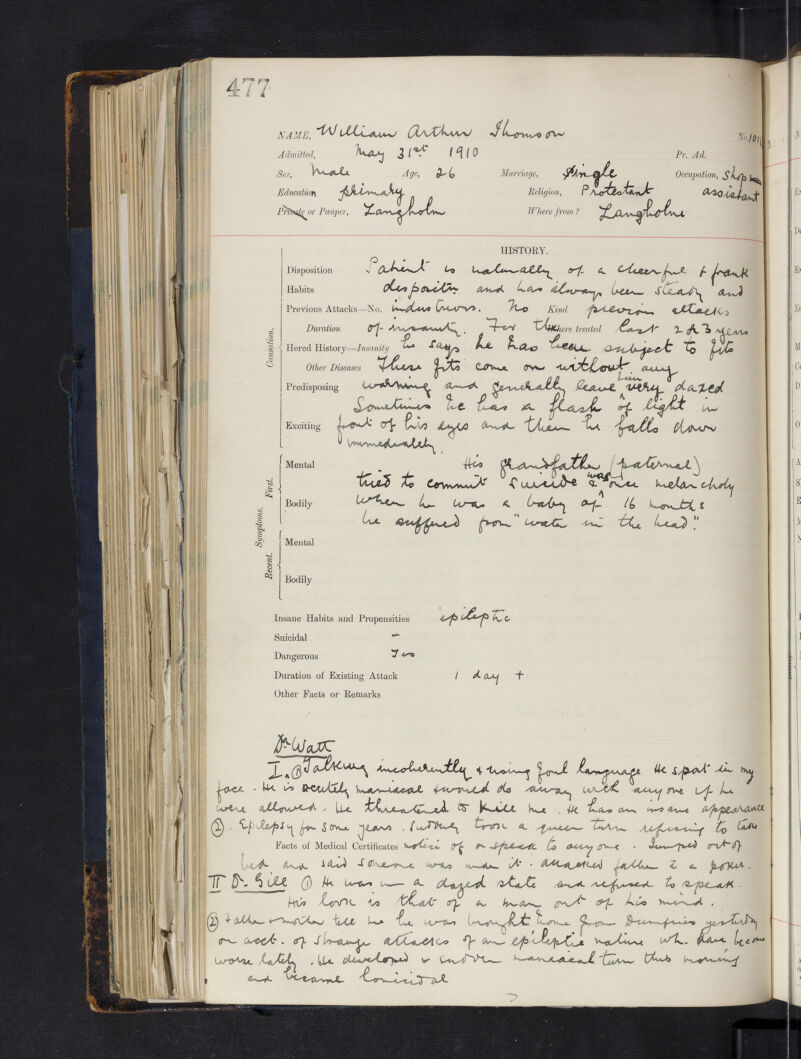 477
NAME, William Arthur Thomson No. 101
Admitted, May 31st 1910 Pr. Ad.
Sex, Male Age, 26 Marriage, Single Occupation, Shop
Education Primary Religion, Protestant assistant
Private or Pauper, Langholm Where from? Langholm
HISTORY.
Disposition Patient is naturally of a cheerful & frank
Habits disposition and has always been steady and
Previous Attacks—No. industrious. No Kind previous attacks
Duration of insanity. For the Where treated last 2 or 3 years
Hered History—Insanity he says he has been subject to fits
Other Diseases These fits come on without any
Predisposing warning and generally leave him very dazed
Sometimes he has a flash of light in
Exciting front of his eyes and then he falls down
immediately.
Causation.
Mental His grandfather (paternal)
tried to commit suicide & was once melancholy
Bodily When he was a baby of 16 months
he suffered from "water in the head".
First.
Symptoms.
Mental
Recent.
Bodily
Insane Habits and Propensities epileptic
Suicidal –
Dangerous Yes
Duration of Existing Attack 1 day +
Other Facts or Remarks
Dr Watt
I. ① Talking incoherently & using foul language He spat in my
face. He is acutely maniacal & would do away with any one if he
were allowed. He threatened to kill me. He has an insane appearance
②. Epilepsy for some years. Suddenly took a queer turn refusing to take
Facts of Medical Certificates notice of or speak to anyone. Jumped out of
bed and said someone was under it. attacked father c a poker.
II Dr Gill ① He was in a dazed state and refused to speak.
His look is that of a man out of his mind.
② Father & mother tell me he was brought home from Dumfries yesterday
on acct. of strange attacks of an epileptic nature wh. have become
worse lately. He developed a sudden maniacal turn this morning
and became homicidal